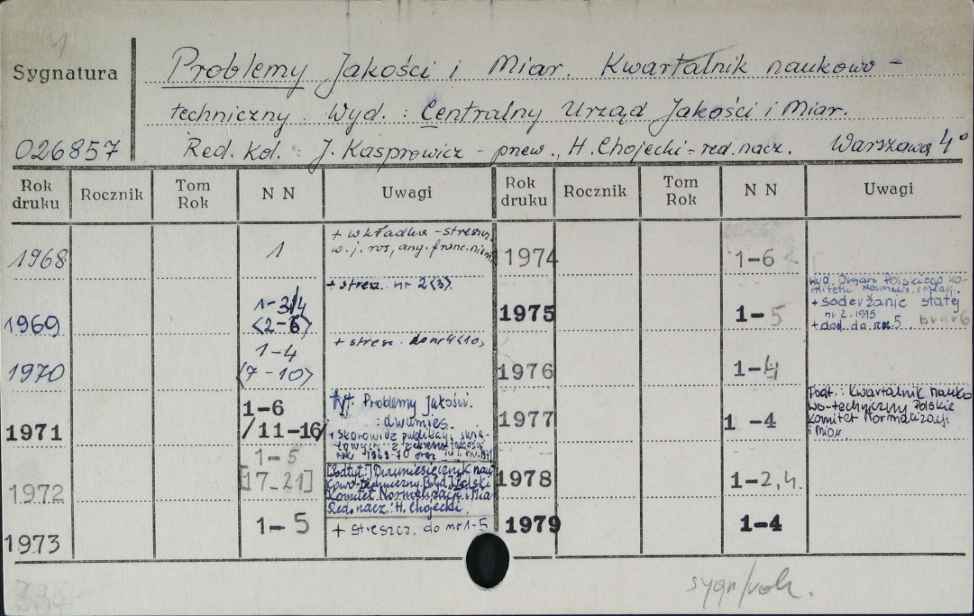 Sygnatura
Problemy Jakości i Miar. Kwartalnik naukowo-
techniczny. Wyd.: Centralny Urząd Jakości i Miar.
026857
Red. kol.: J. Kasprowicz - przew., H. Chojecki - red. nacz. Warszawa 4°
Rok druku Rocznik Tom Rok N N Uwagi Rok druku Rocznik Tom Rok N N Uwagi
1968 1 + wkładka - streszcz.
w j. ros, ang. franc. niem
1969 1-3/4
<2-6>
+ streszcz. nr 2<3>
1970 1-4
<7-10>
+ streszcz. do nr 4<10>
1971 1-6
/11-16/
Tyt. Problemy Jakości.
: dwumies.
+ Skorowidz
1972 1-5
[17-21]
[Podtyt.:] Dwumiesięcznik nau
kowo-techniczny. [Wyd.] Polski
Komitet Normalizacji i Miar
Red. nacz.: H. Chojecki.
1973 1-5 + streszcz. do nr 1-5
1974 1-6
1975 1-5
+ soderžanie statej
nr 2. 1975
+ dod. do nr 5
1976 1-4
1977 1-4
Podt.: Kwartalnik nauko
wo-techniczny Polskie
Komitet Normalizacji
i Miar
1978 1-2,4.
1979 1-4
sygn/rok.